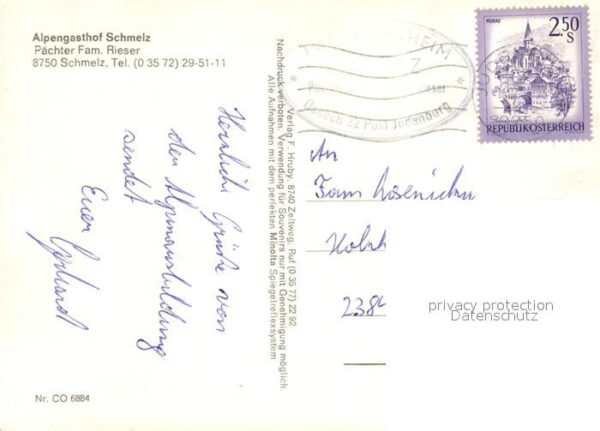 Alpengasthof Schmelz
Pächter Fam. Rieser
8750 Schmelz, Tel. (0 35 72) 29-51-11
Herrliche Grüße von
der Alpinausbildung
sendet
Euer Gerhard
Nr. CO 6884
Verlag F. Hruby, 8740 Zeltweg, Ruf (0 35 77) 22 92
Nachdruck verboten. Verwendung für Souvenirs nur mit Genehmigung möglich.
Alle Aufnahmen mit dem perfekten Minolta Spiegelreflexsystem
HEIM
7
22 Post Judenburg
MURAU
2.50
S
REPUBLIK ÖSTERREICH
An
Fam
2384
privacy protection
Datenschutz